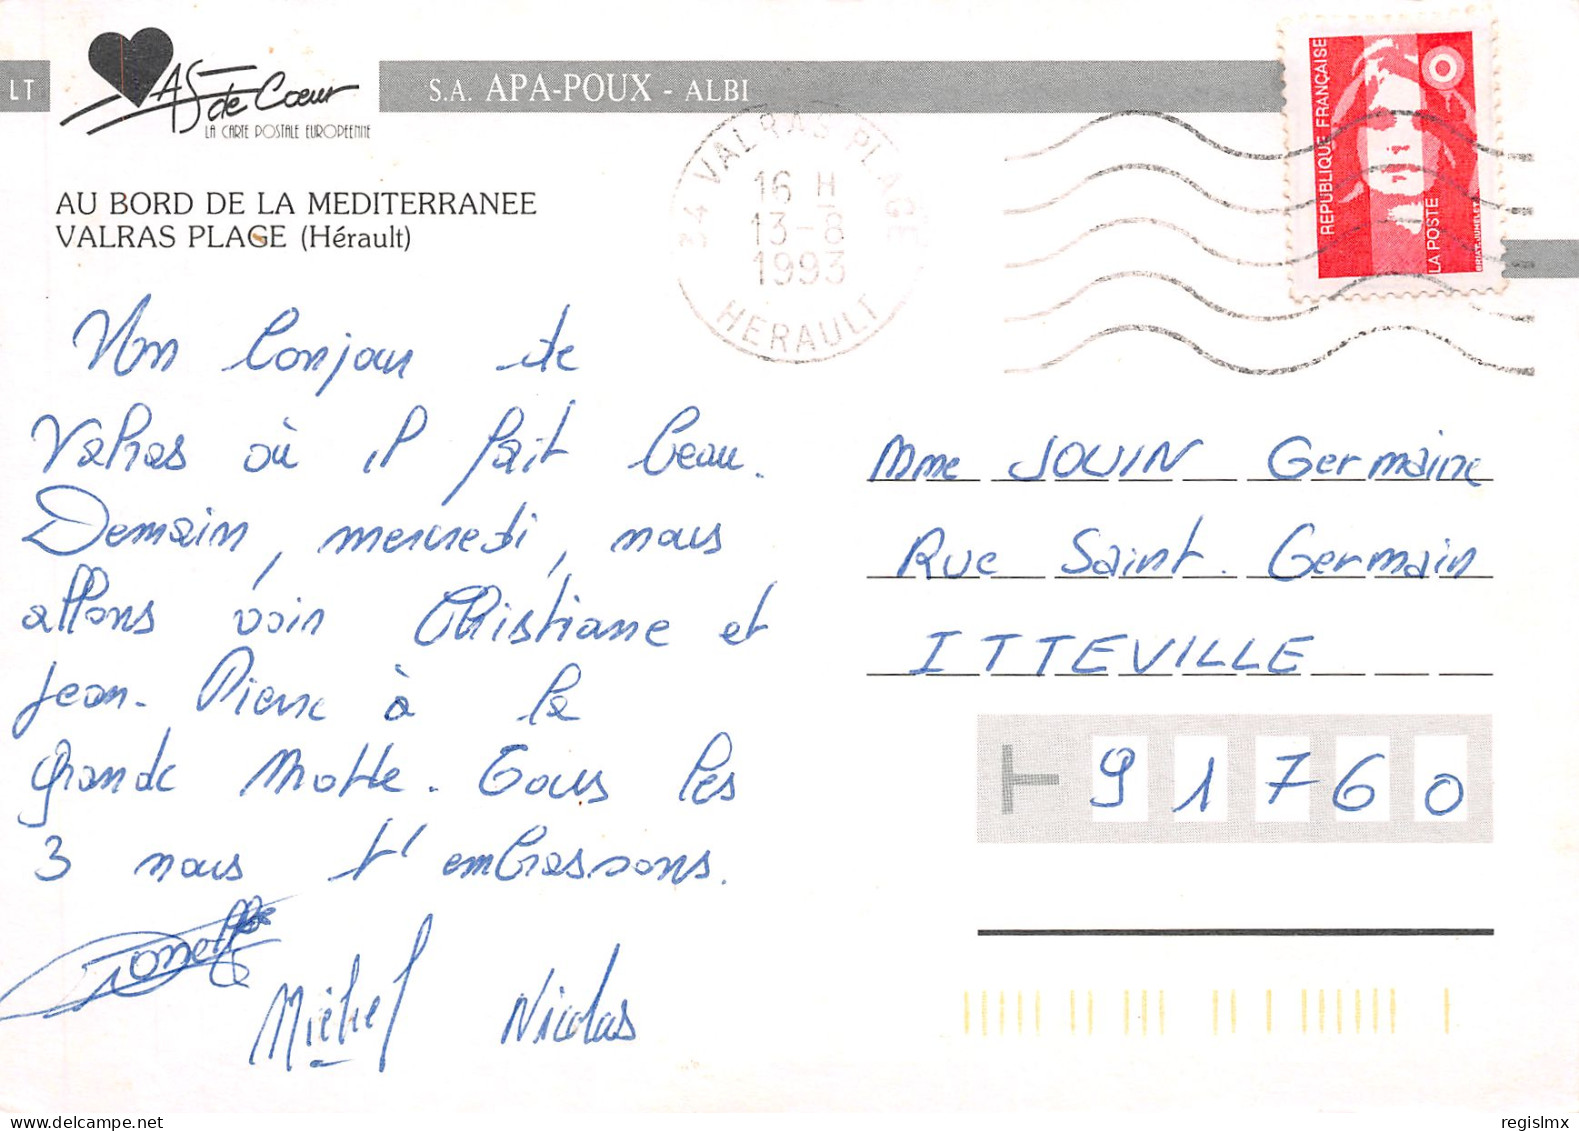 LT
AS de Cœur
LA CARTE POSTALE EUROPEENNE
S.A. APA-POUX - ALBI
AU BORD DE LA MEDITERRANEE
VALRAS PLAGE (Hérault)
34 VALRAS PLAGE
16 H
13-8
1993
HERAULT
REPUBLIQUE FRANÇAISE
LA POSTE
BRIAT-JUMELET
Un bonjour de
Valras où il fait beau.
Demain, mercredi, nous
allons voir Christiane et
Jean-Pierre à la
grande Motte. Tous les
3 nous t'embrassons.
Michel Nicolas
Mme JOUIN Germaine
Rue Saint-Germain
ITTEVILLE
91760
regislmx